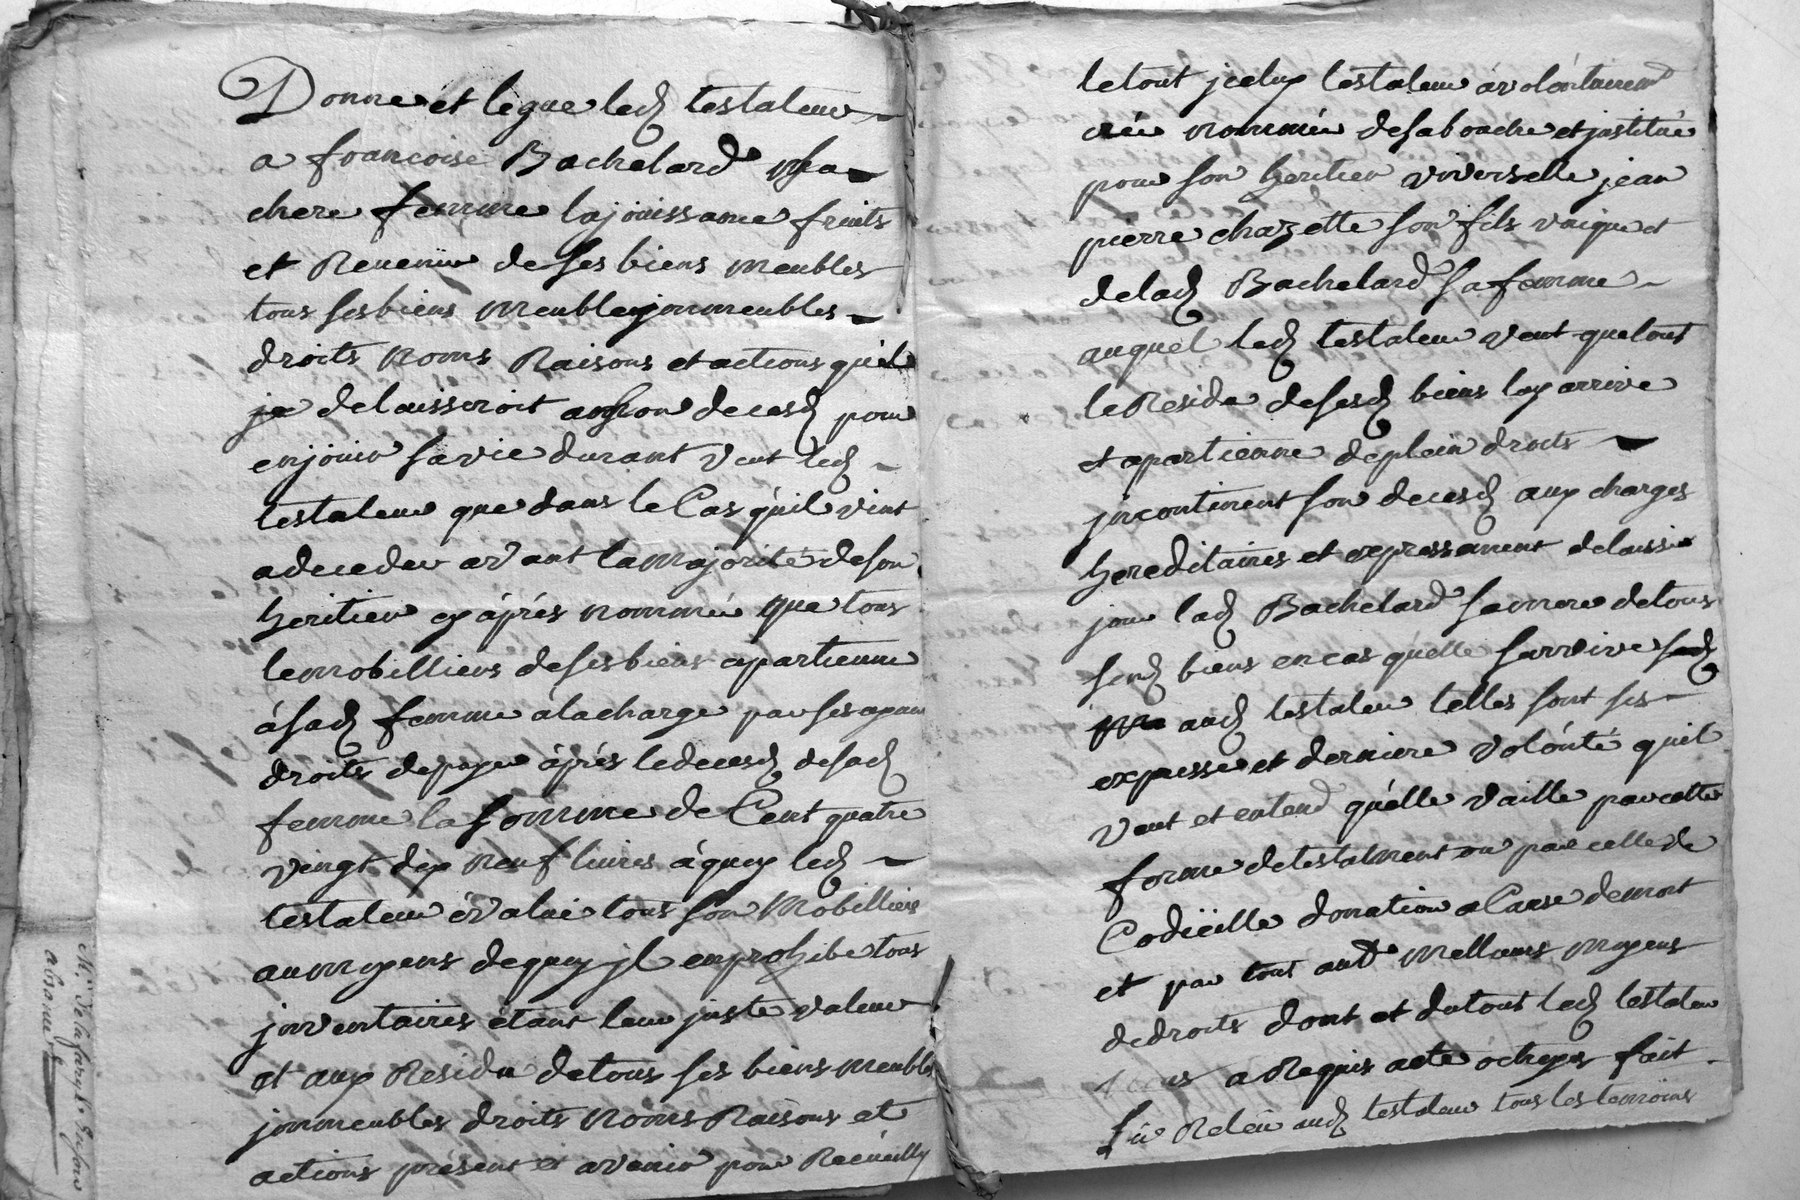 Donne et legue led testateur
a francoise Bachelard sa
chere femme la jouissance fruits
et Revenus de ses biens meubles
tous ses biens meubles jmmeubles
droits noms Raisons et actions quil
delaisseroit a son decesd pour
en jouir sa vie durant veut led
testateur que dans le Cas quil vint
a deceder avant la majorité de son
heritier cy àprés nommée que tous
le mobilliers de ses biens apartienne
à sad femme a la charge par ses ayant
droits de payer àprés le decesd de sad
femme la somme de Cent quatre
vingt dix neuf livres à quoy led
testateur évalue tous son Mobilliers
au moyens de quoy jl en prohibe tous
jnventaires etant leur juste valeur
et aux Residu de tous ses biens meubles
jmmeubles droits noms Raisons et
actions présent et avenir pour Recueilly
le tout jceluy testateur à volontairemt
crée nommée de sa bouche et justitué
pour son heritier vniverselle jean
pierre chazette son fils vnique et
de lad Bachelard sa femme
auquel led testateur veut que tout
le Reside de sesd biens luy arrive
et apartienne de plein droits
jncontinent son decesd aux charges
hereditaires et expressement de laisser
jouir lad Bachelard sa mere de tous
sesd biens en cas qu'elle survive
aud testateur telles sont ses
expresse et derniere volónté quil
veut et entend qu'élle vaille par cette
forme de testatment ou par celle de
Codicille donration a Cause de mort
et par tous autt mellieurs moyens
de droits dont et du tout led testateur
a Requis acte octroyer fait
Lü Releü aud testateur tous les temoins
Mr De la farge